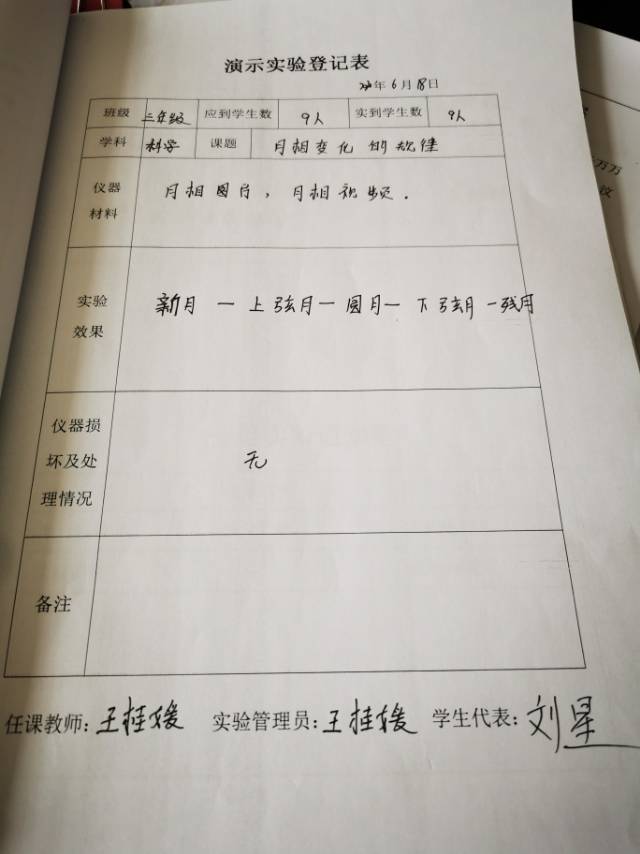 演示实验登记表
年6月18日
班级 三年级 应到学生数 9人 实到学生数 9人
学科 科学 课题 月相变化的规律
仪器
材料
月相图片，月相视频.
实验
效果
新月—上弦月—圆月—下弦月—残月
仪器损
坏及处
理情况
无
备注
任课教师:王桂媛 实验管理员:王桂媛 学生代表:刘星
万万